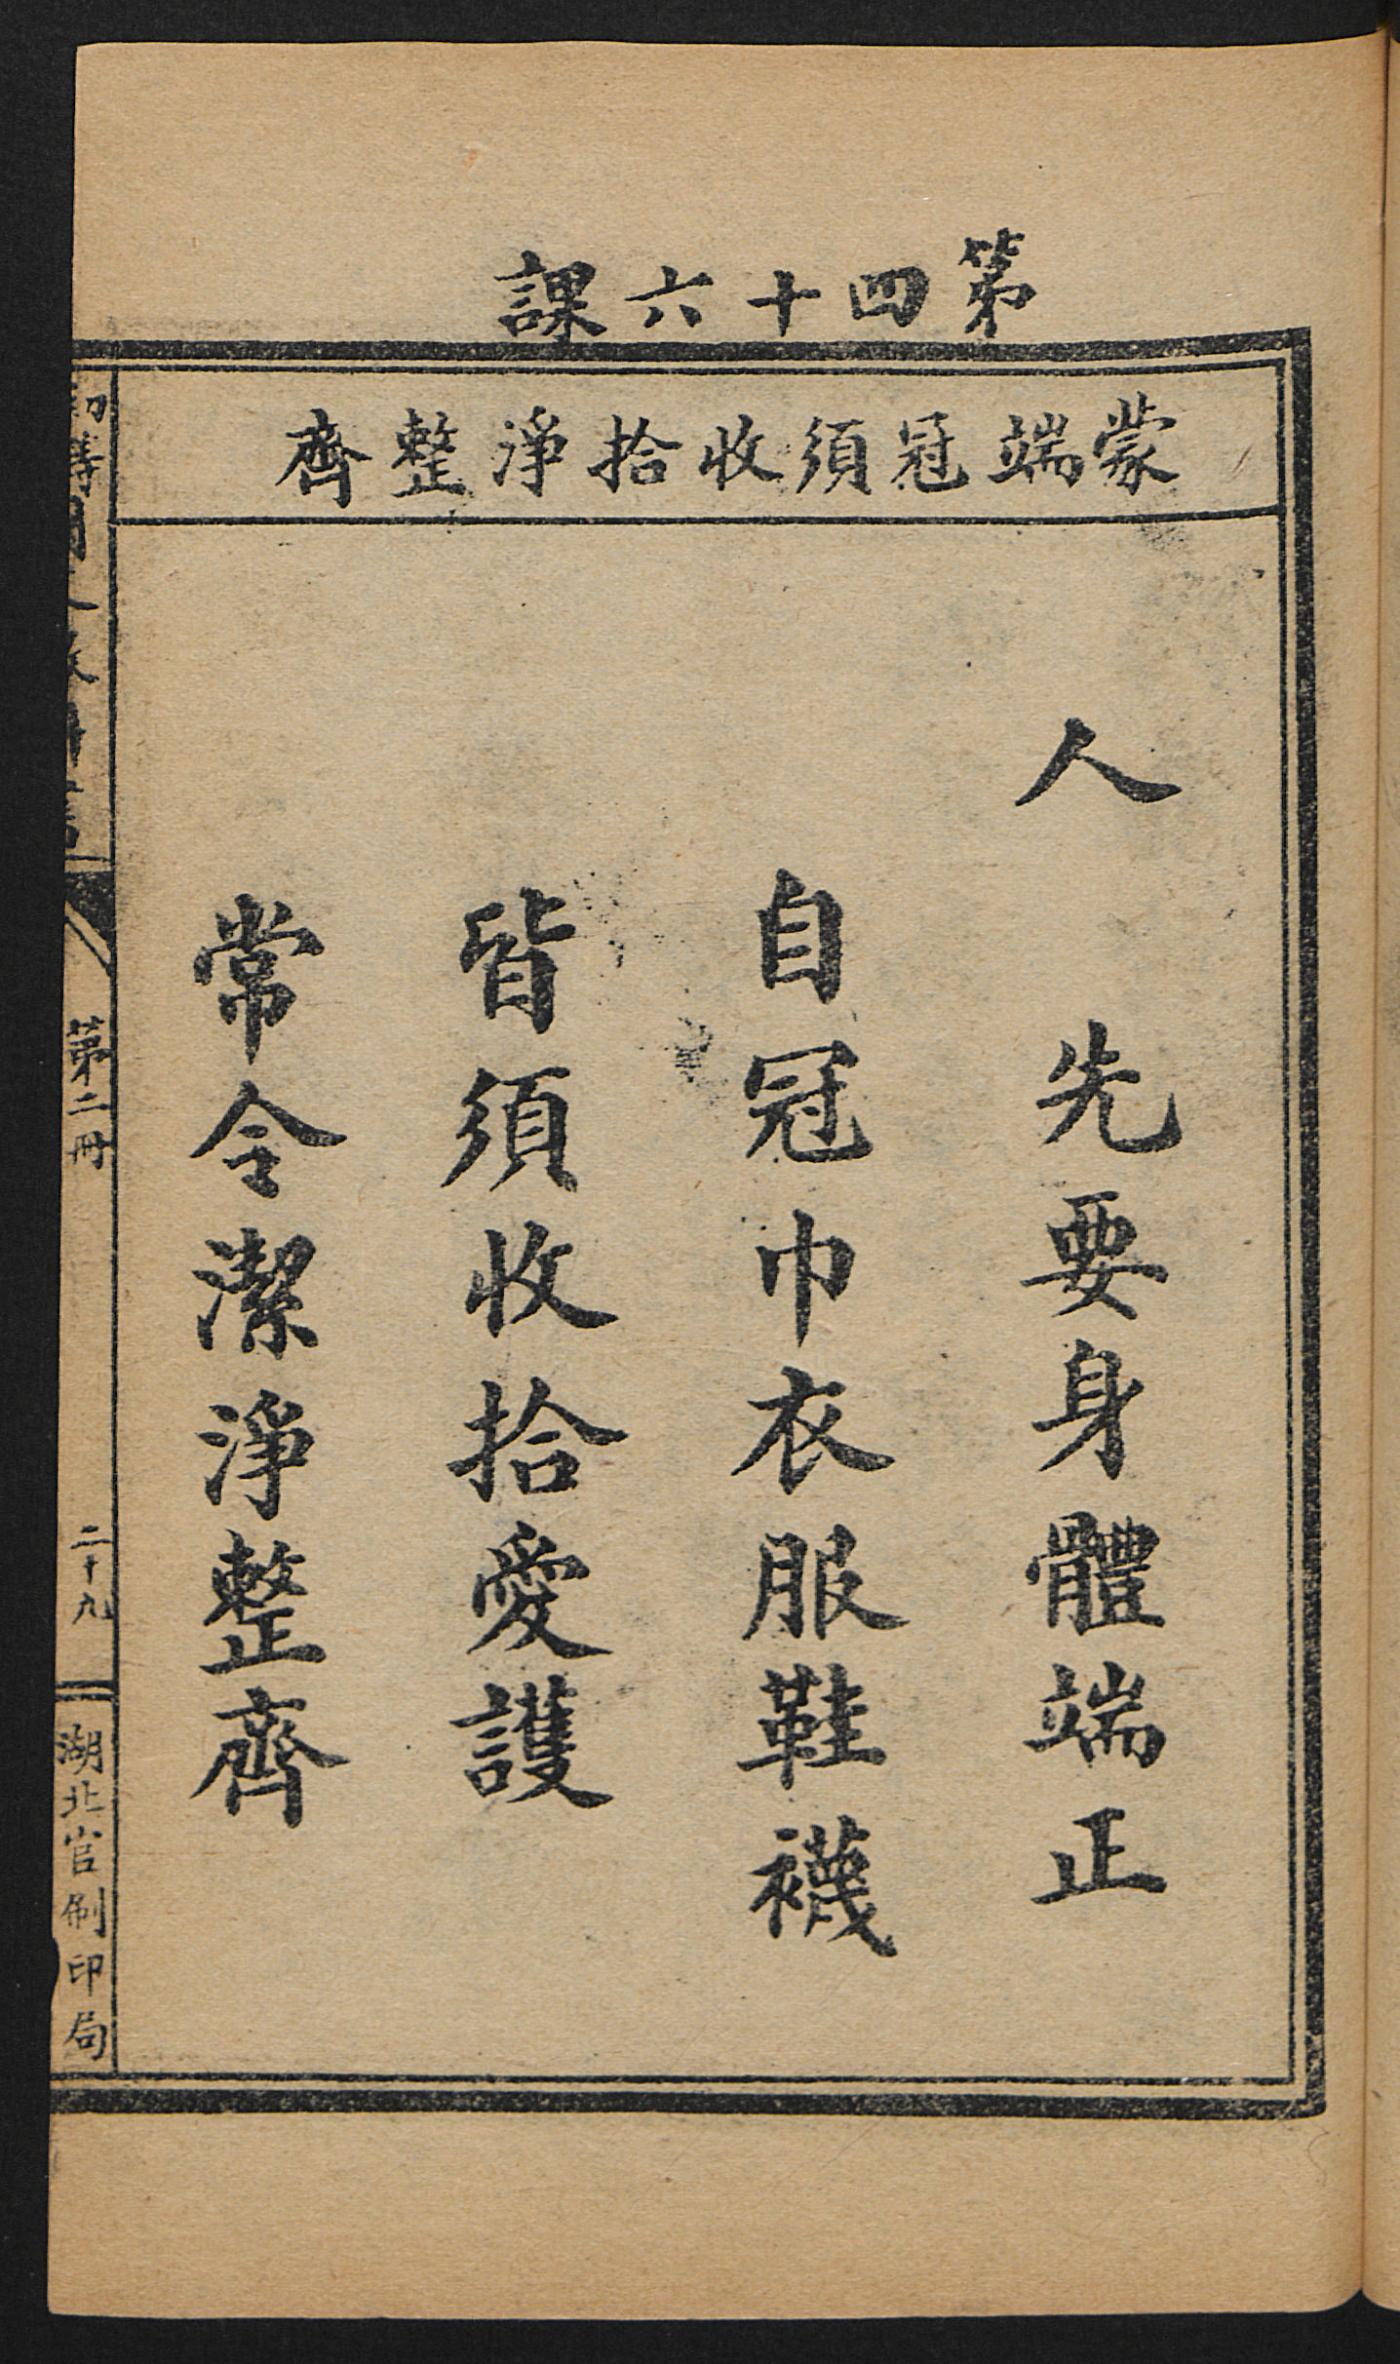 第四十六課
蒙端冠須收拾淨整齊
人　先要身體端正
自冠巾衣服鞋襪
皆須收拾愛護
常令潔淨整齊
第二冊
二十九
湖北官刷印局